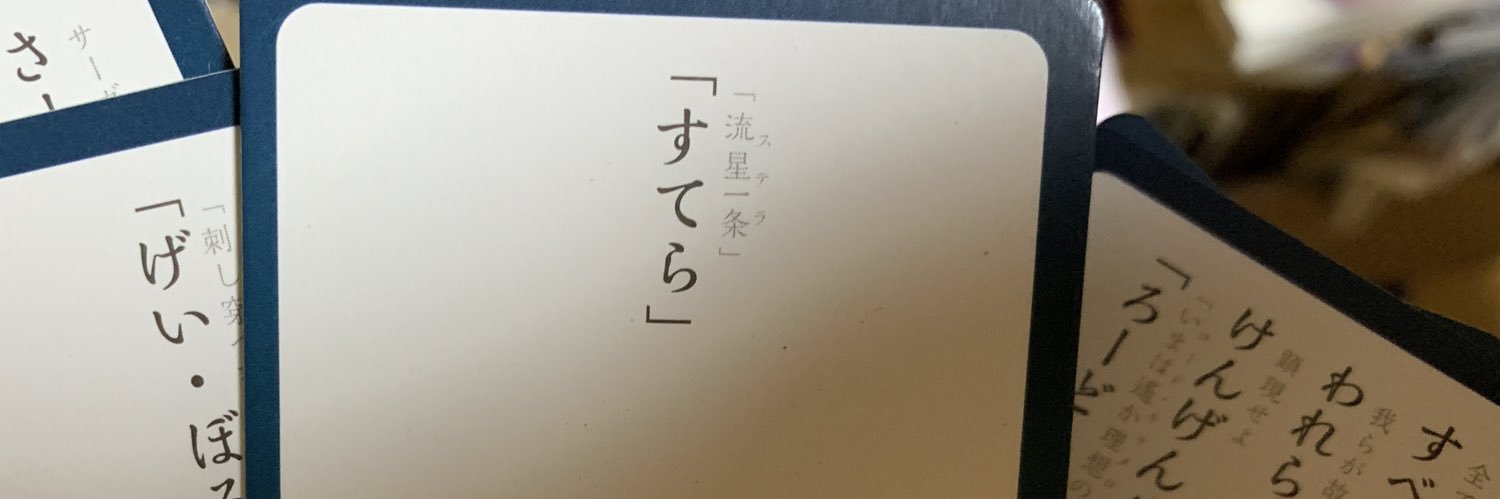 サーゼ
さー
「刺し穿
「げい・ぼる
スデラ
「流星一条」
「すてら」
全
すべ
我らが故
われら
顕現せよ
けんげん
「いまは遙か理想の
「ろーど